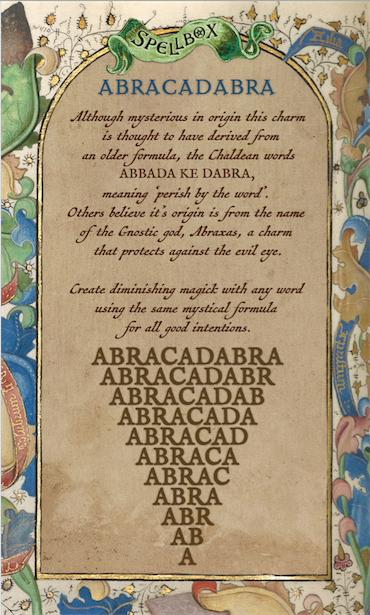 SPELLBOX
ABRACADABRA
Although mysterious in origin this charm
is thought to have derived from
an older formula, the Chaldean words
ABBADA KE DABRA,
meaning 'perish by the word'.
Others believe it's origin is from the name
of the Gnostic god, Abraxas, a charm
that protects against the evil eye.
Create diminishing magick with any word
using the same mystical formula
for all good intentions.
ABRACADABRA
ABRACADABR
ABRACADAB
ABRACADA
ABRACAD
ABRACA
ABRAC
ABRA
ABR
AB
A